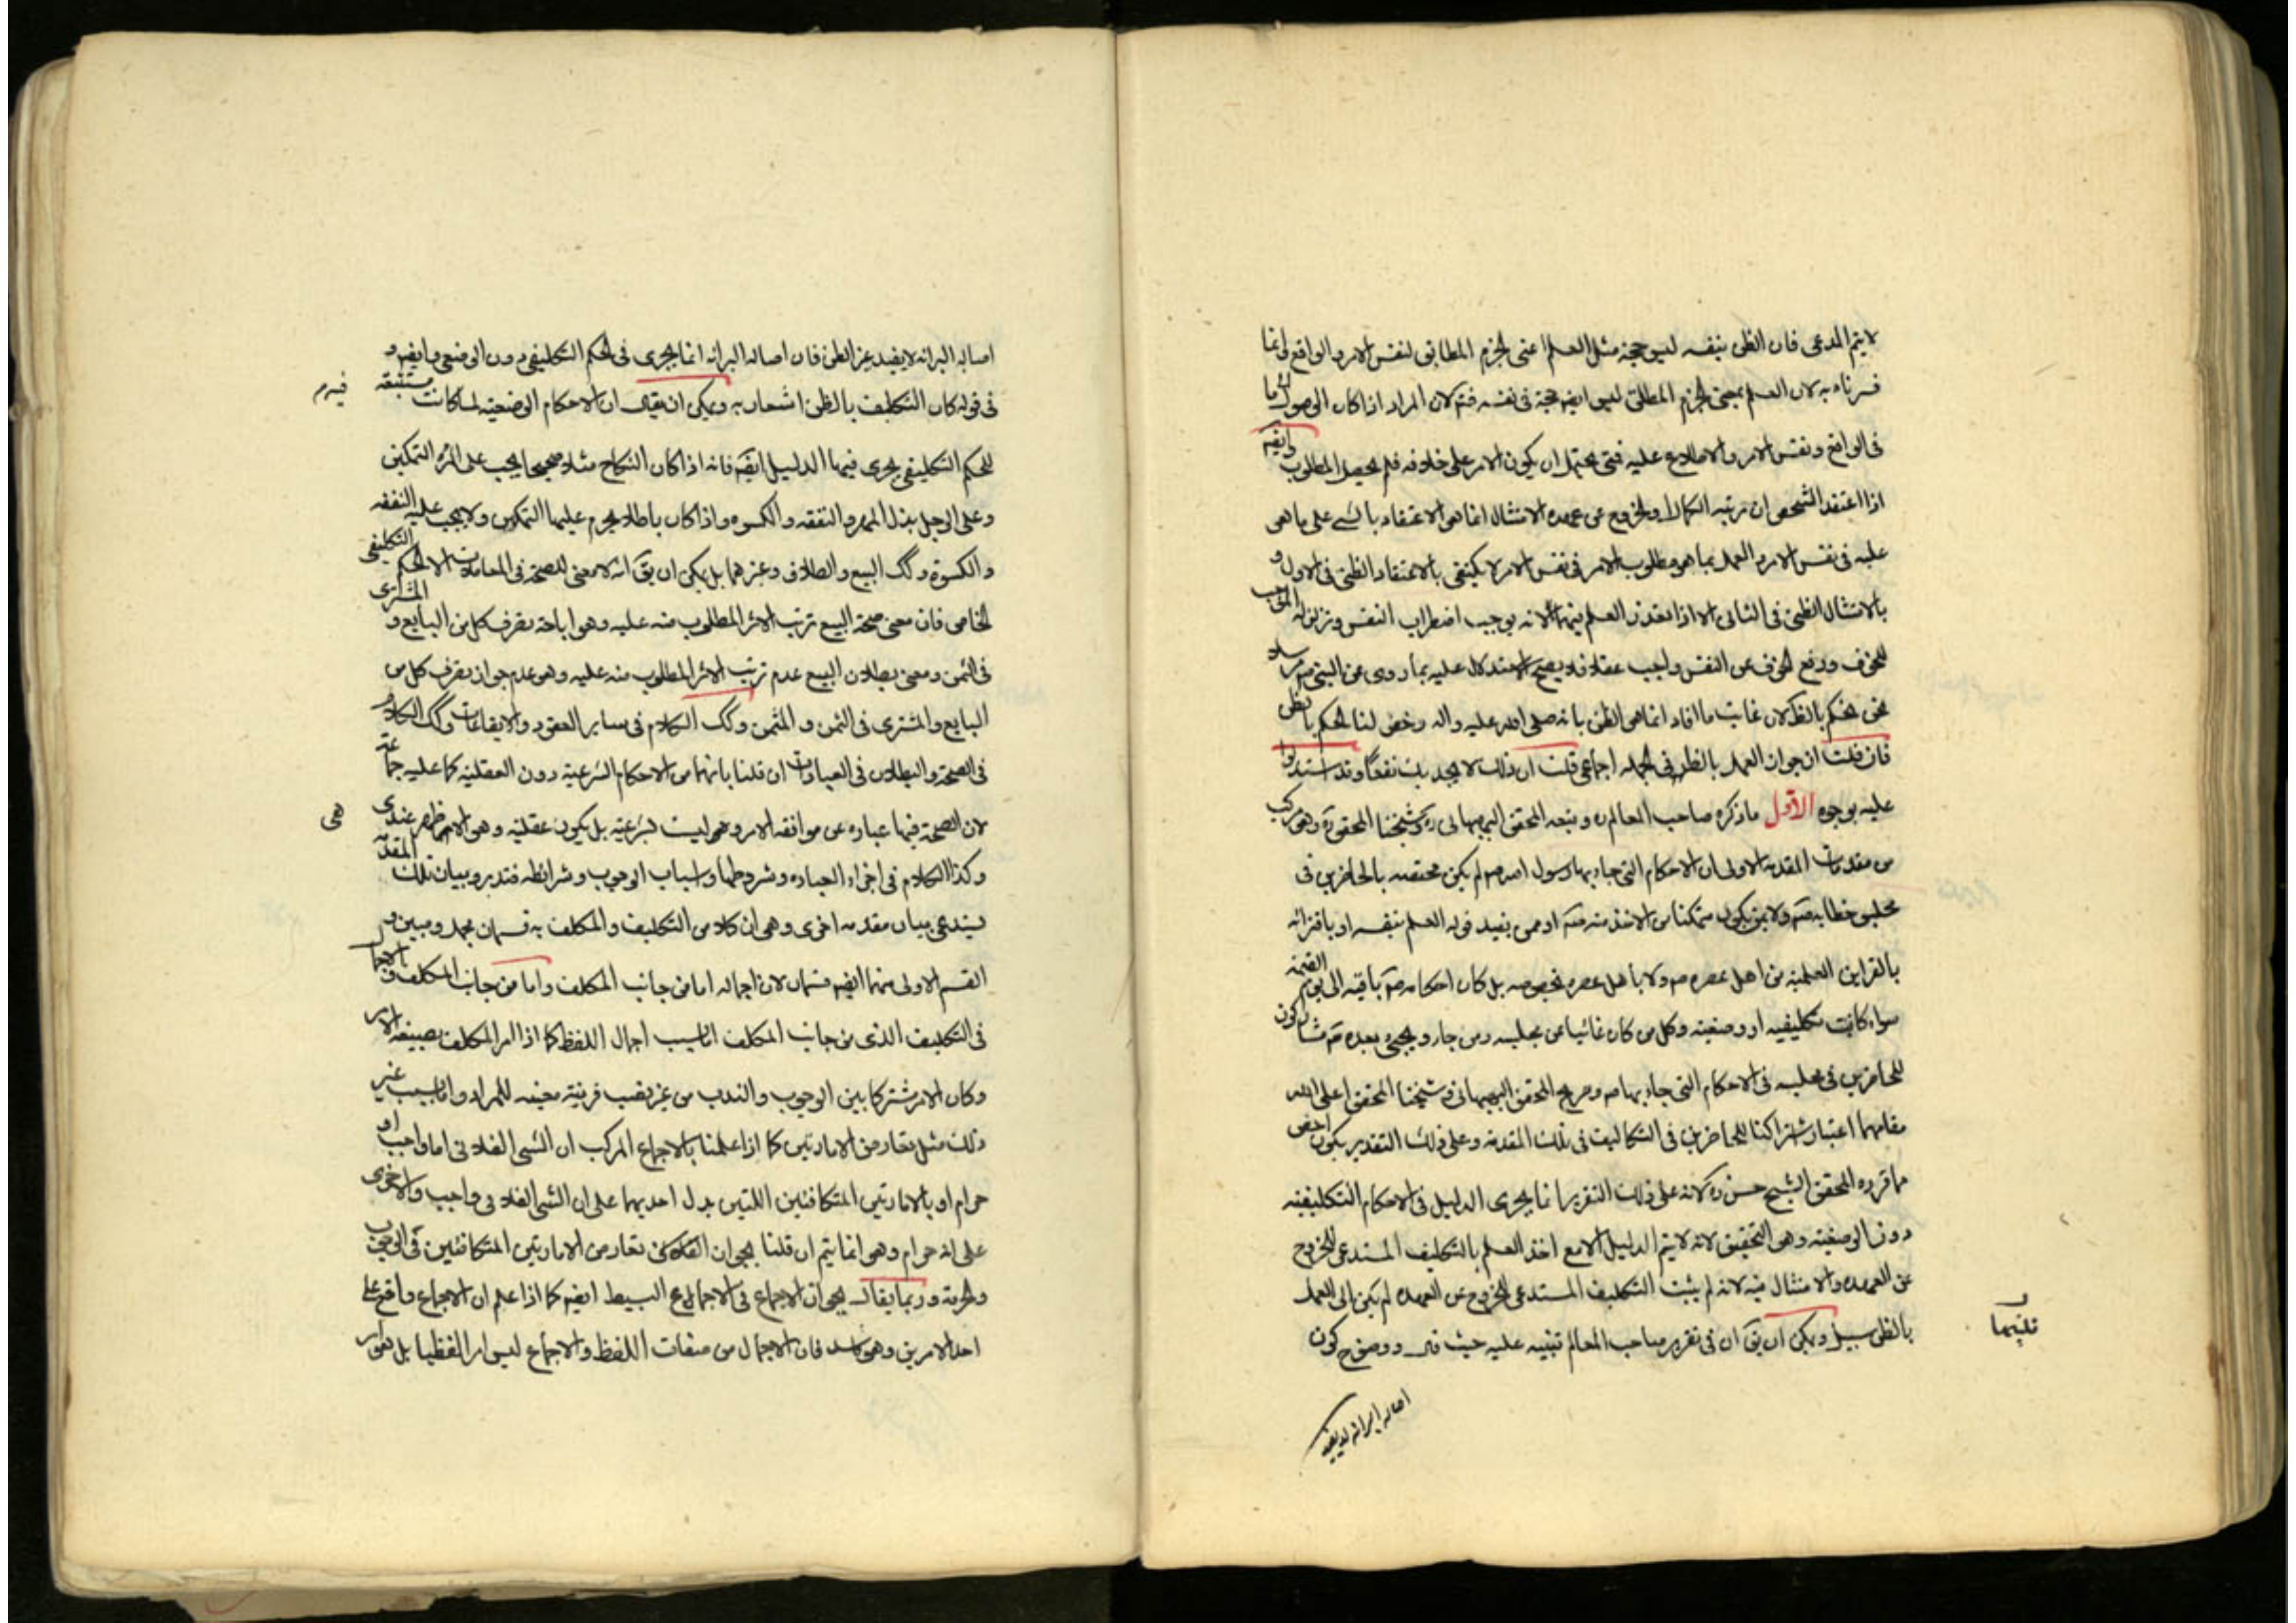 لا يتم المدعى فان الظن بنفسه ليس حجة مثل العلم اعنى الجزم المطابق لنفس الامر والواقع وانما
فسرناه به لان العلم بمعنى الجزم المطلق ليس ايضه حجة فى نفسه فتم لان المراد اذا كان الوصول الى ما
فى الواقع ونفس الامر والاطلاع عليه فمتى يحتمل ان يكون الامر على خلافه فلم يحصل المطلوب وايضه
اذا اعتقد الشخص ان مرتبه الكمال والخروج عن عهده الامتثال انما هى الاعتقاد بالشئ على ما هى
عليه فى نفس الامر والعمل بما هو مطلوب الامر فى نفس الامر لا يكتفى بالاعتقاد الظنى فى الاول و
بالامتثال الظنى فى الثانى الا اذا تعذر العلم فيهما لانه يوجب اضطراب النفس وتزلزله الموجب
للخوف ودفع الخوف عن النفس واجب عقلا فلا يصح الاستدلال عليه بما روى عن النبى ص مرسلا
نحن نحكم بالظ لان غايت ما افاد انما هى الظن بانه صلى الله عليه واله رخص لنا الحكم بالظن
فان قلت ان جواز العمل بالظن فى الجمله اجماعى قلت ان ذلك لا يجديك نفعا وقد استدلوا
عليه بوجوه الاول ما ذكره صاحب المعالم ره وتبعه المحقق البهبهانى ره وشيخنا المحقق ره وهى مركب
من مقدمات المقدمه الاولى ان الاحكام التى جاء بها رسول الله ص لم يكن مختصه بالحاضرين فى
مجلس خطابه ص ولا بمن يكون متمكنا من الاخذ منه ص او ممن يفيد قوله العلم بنفسه او باقترانه
بالقراين العلميه من اهل عصره ص ولا باهل عصره بخصوصه بل كان احكامه ص باقيه الى يوم القيمه
سواء كانت تكليفيه او وضعيه وكل من كان غائبا عن مجلسه ومن جاء ويجئ بعده ص مشاركون
للحاضرين فى مجلسه فى الاحكام التى جاء بها ص وصريح المحقق البهبهانى وشيخنا المحقق اعلى الله
مقامهما اعتبار اشتراكنا للحاضرين فى التكاليف فى تلك المقدمه وعلى ذلك التقدير يكون اخص
مما قرره المحقق الشيخ حسن ره لانه على ذلك التقرير انما يجرى الدليل فى الاحكام التكليفيه
دون الوضعيه وهى التحقيق لانه لا يتم الدليل الا مع اخذ العلم بالتكليف المستدعى للخروج
عن العهده والامتثال فيه لانه لم يثبت التكليف المستدعى للخروج عن العهده لم يكن الى العمل
بالظن سبيل ويمكن ان يق ان فى تقرير صاحب المعالم تنبيه عليه حيث قال ووضوح كون
اصاله البرائه لايفيد
اصاله البرائه لا يفيد غير الظن فان اصاله البرائه انما يجرى فى الحكم التكليفى دون الوضعى وايضه و
فى قوله كان التكليف بالظن اشعار به ويمكن ان يقال ان الاحكام الوضعيه لما كانت مستتبعه
للحكم التكليفى يجرى فيها الدليل ايضه فانه اذا كان النكاح مثلا صحيحا يجب على المرئه التمكين
وعلى الرجل بذل المهر والنفقه والكسوه واذا كان باطلا يحرم عليها التمكين ولا يجب عليه النفقه
والكسوة وكك البيع والطلاق وغيرهما بل يمكن ان يق انه لا معنى للصحة فى المعاملات الا الحكم التكليفى
الخاص فان معنى صحة البيع ترتب الاثر المطلوب منه عليه وهو اباحة تصرف كل من البايع و المشترى
فى الثمن ومعنى بطلان البيع عدم ترتب الاثر المطلوب منه عليه وهو عدم جواز تصرف كل من
البايع والمشترى فى الثمن و المثمن وكك الكلام فى ساير العقود والايقاعات وكك الكلام
فى الصحة والبطلان فى العبادات ان قلنا بانهما من الاحكام الشرعية دون العقلية كما عليه جماعة
لان الصحة فيها عباره عن موافقه الامر وهى ليست بشرعية بل يكون عقلية وهو الاظهر عندى
وكذا الكلام فى اجزاء العباده وشروطها واسباب الوجوب وشرائطه فتدبر وبيان تلك المقدمه
يستدعى بيان مقدمه اخرى وهى ان كلا من التكليف والمكلف به قسمان مجمل ومبين و
القسم الاول منهما ايضه قسمان لان اجماله اما من جانب المكلف واما من جانب المكلف فالاجمال
فى التكليف الذى من جانب المكلف اما بسبب اجمال اللفظ كما اذا امر المكلف بصيغه الامر
وكان الامر مشتركا بين الوجوب والندب من غير نصب قرينة معينه للمراد واما بسبب غير
ذلك مثل تعارض الامارتين كما اذا علمنا بالاجماع المركب ان الشئ الفلانى اما واجب او
حرام او بالامارتين المتكافئين اللتين يدل احديهما على ان الشئ الفلانى واجب والاخرى
على انه حرام وهى انما يتم ان قلنا بجواز التكافئ تعارض الامارتين المتكافئين فى الوجوب
والحرمة وربما يقال بجواز الاجماع فى الاجماع البسيط ايضه كما اذا علم ان الاجماع واقع على
احد الامرين وهو كاسد فان الاجمال من صفات اللفظ والاجماع ليس امرا لفظيا بل هو امر